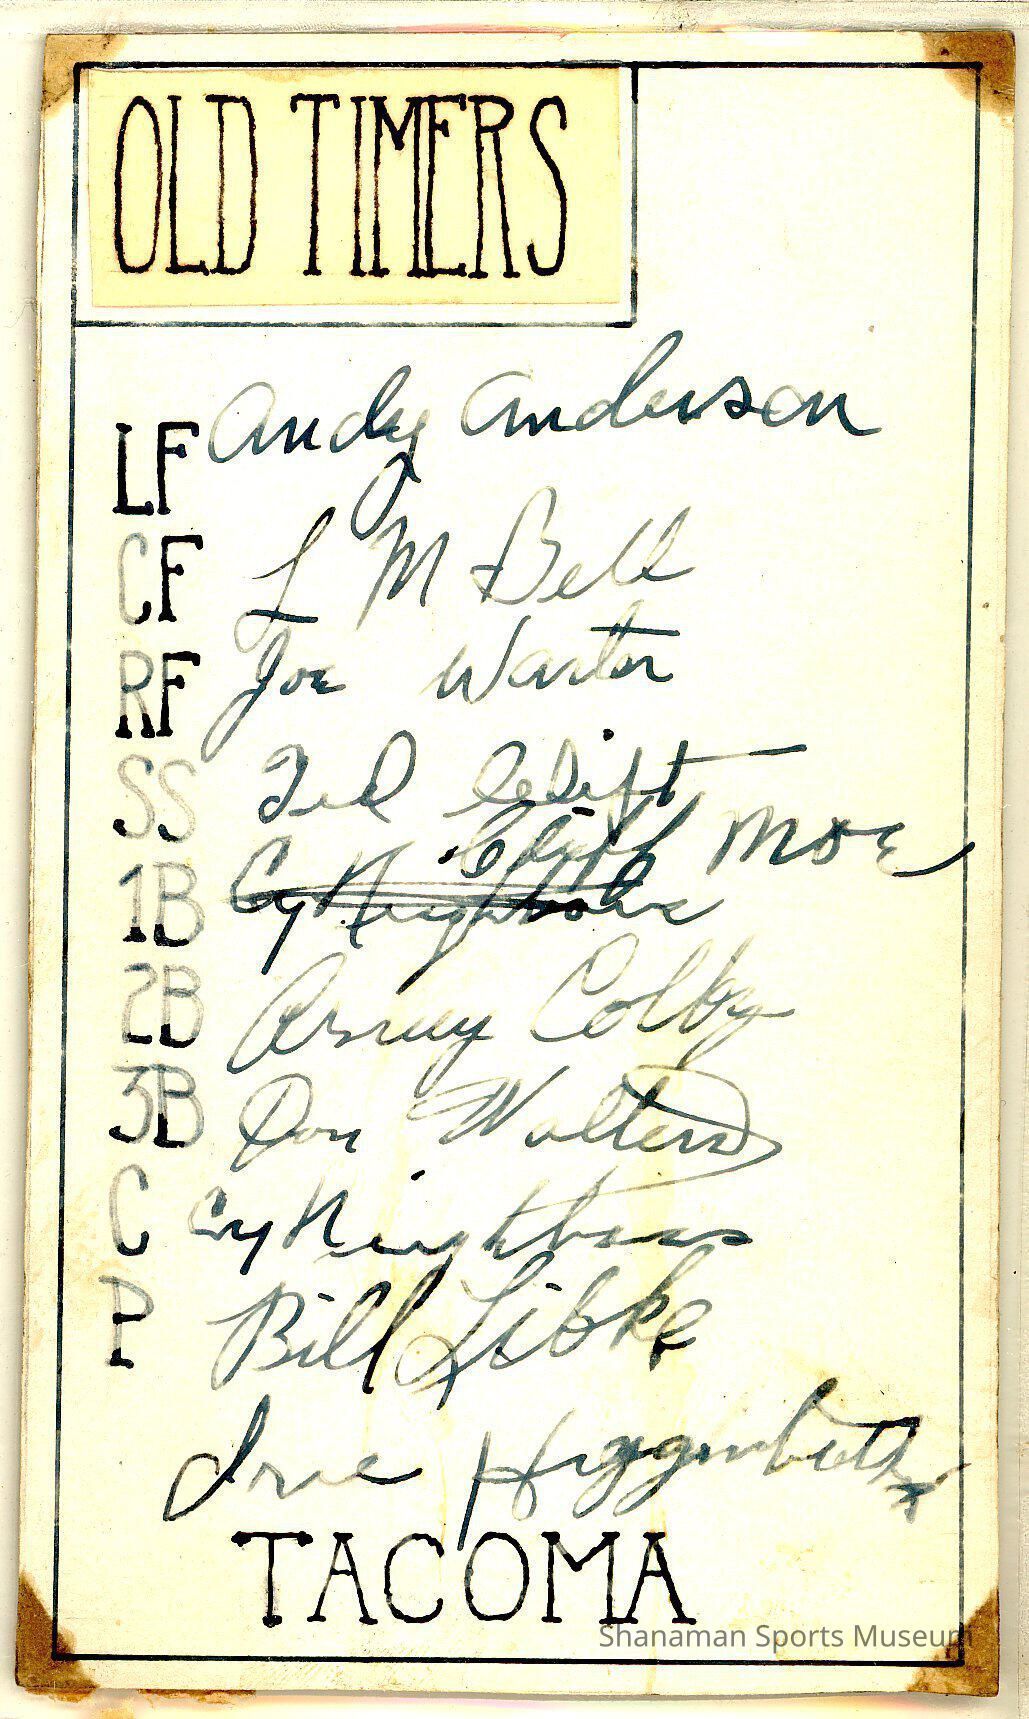 OLD TIMERS
LF Andy Anderson
CF L M Bell
RF Joe Warter
SS Ted Clift
Cliff Moe
1B Cy Neighbors
2B Army Colby
3B Don Walters
C Cy Neighbors
P Bill Libke
Higgenbottom
TACOMA
Shanaman Sports Museum